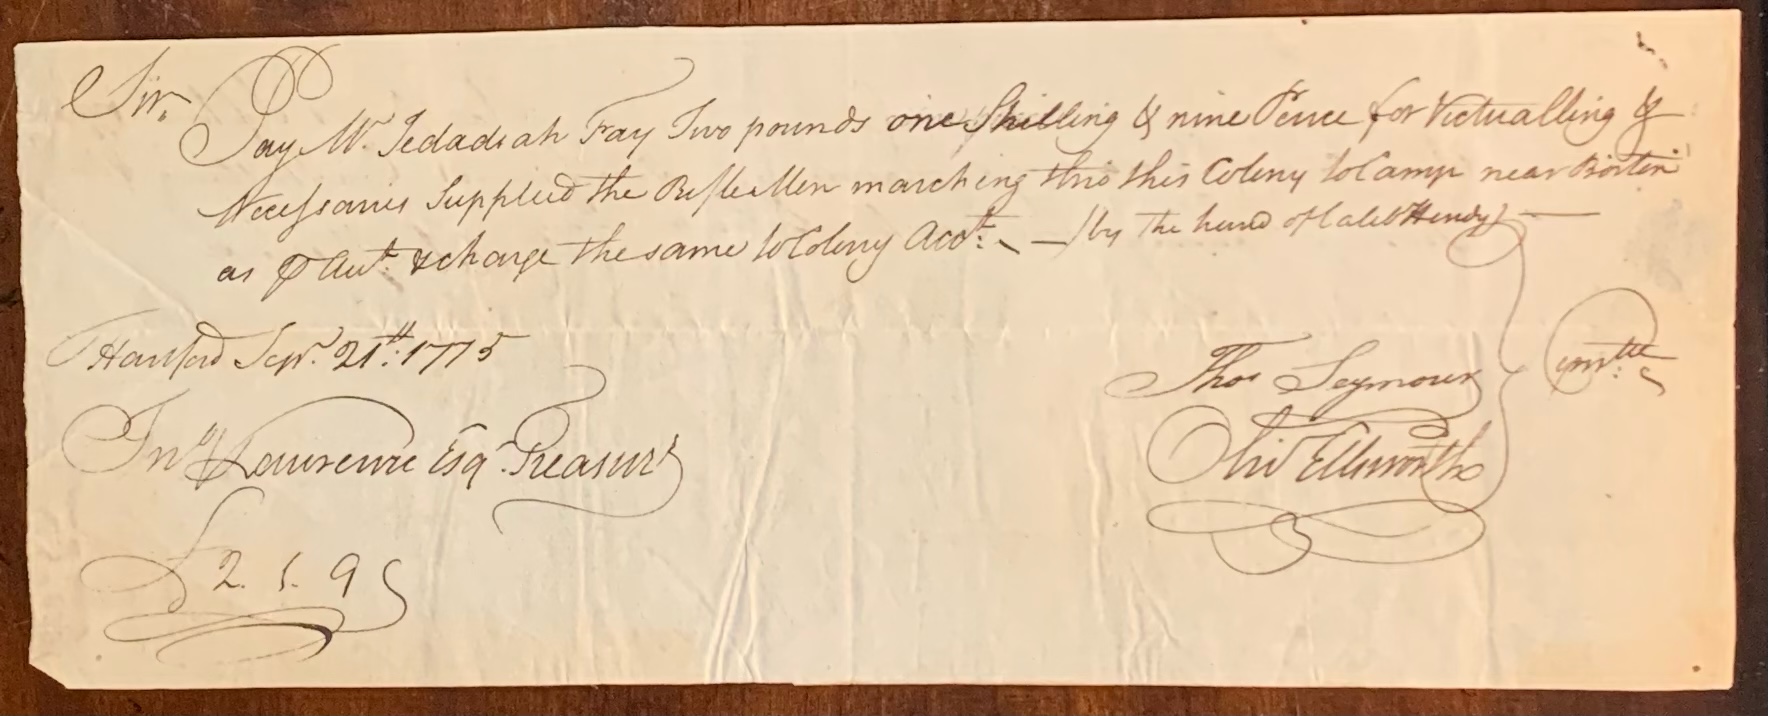 Sir,
Pay Mr. Jedadiah Fay Two pounds one Shilling & nine Pence for Victualling &
Necessaries Supplied the Rifle Men marching thro this Colony to Camp near Boston
as ⅌ Acct. & charge the same to Colony Acct. — (by the hand of Caleb Hendy) —
Hartford Sepr. 21th: 1775
Thos Seymour
Comtte
Jno Lawrence Esqr. Treasurr
Olivr Ellsworth
£2. 1. 9